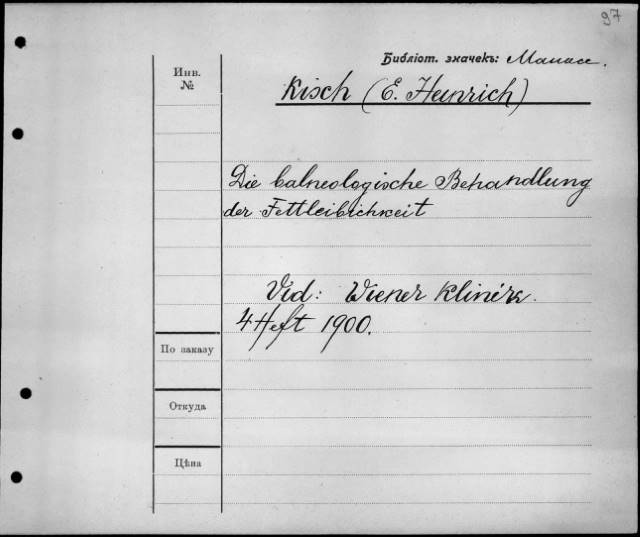 97
Библіот. значекъ: Манасс.
Инв.
№
Kisch (E. Heinrich)
Die balneologische Behandlung
der Fettleibichkeit
Vid: Wiener Klinik.
4 Heft 1900.
По заказу
Откуда
Цѣна